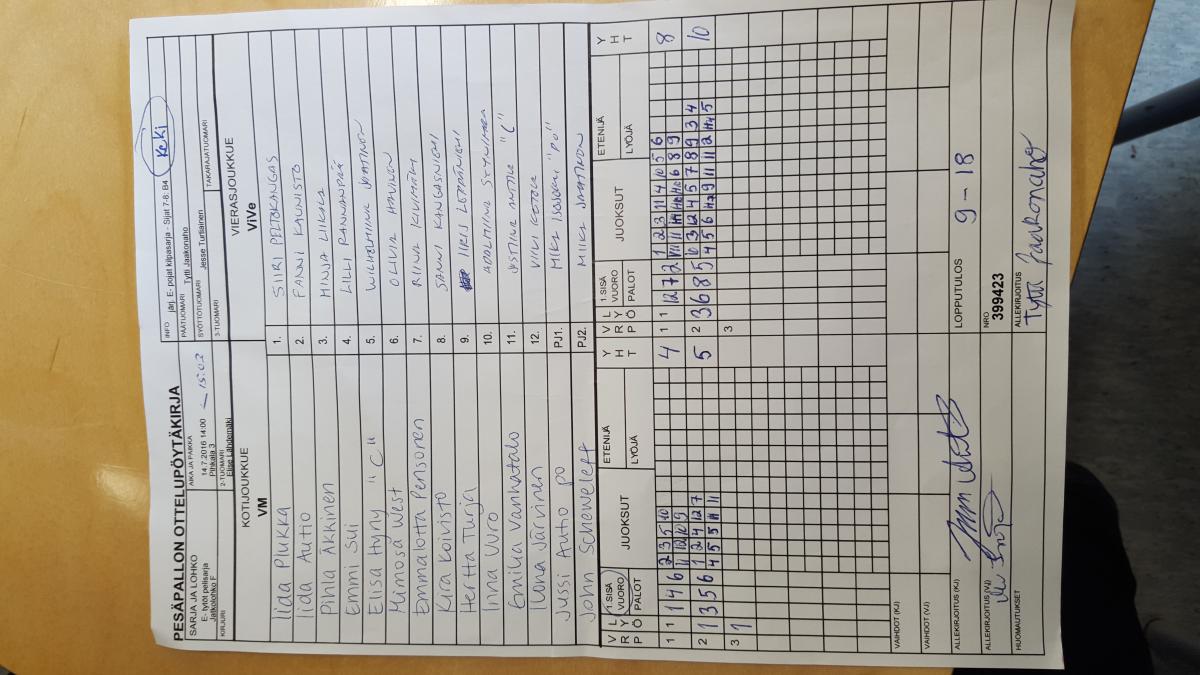 PESÄPALLON OTTELUPÖYTÄKIRJA
KeKi
SARJA JA LOHKO
E- tytöt pelisarja
Jatkolohko F
AIKA JA PAIKKA
14.7.2016 14:00 – 15:02
Pihkala 3
INFO järj. E- pojat kilpasarja - Sijat 7-8: B4
PÄÄTUOMARI Tytti Jaakonaho
SYÖTTÖTUOMARI Jesse Turtiainen
KIRJURI
2-TUOMARI
Elise Lähdemäki
3-TUOMARI
TAKARAJATUOMARI
KOTIJOUKKUE
VM
VIERASJOUKKUE
ViVe
Iida Plukka 1. SIIRI PELTOKANGAS
Iida Autio 2. FANNI KAUNISTO
Pihla Äkkinen 3. MINJA LIIKALA
Emmi Sui 4. LILLI RANNANPÄÄ
Elisa Hyry "C" 5. WILHELMIINA
Mimosa West 6. OLIVIA
Emmalotta Pensonen 7. RIINA KIVIMÄKI
Kira Koivisto 8. SANNI KANGASNIEMI
Hertta Turja 9. IIRIS
Inna Uuro 10. ADALMIINA
Emilia Vanhatalo 11. JUSTINA ANTTILA "C"
Ilona Järvinen 12. VIIVI KETOLA
Jussi Autio po PJ1. MIKA ISOSAARI "PO"
John Scheweleff PJ2. MIIKA
V R P L Y Ö 1.SISÄ VUORO PALOT JUOKSUT ETENIJÄ LYÖJÄ Y H T
V R P L Y Ö 1.SISÄ VUORO PALOT JUOKSUT ETENIJÄ LYÖJÄ Y H T
1 1 1 4 6 2 3 5 10 4
11 12 10 9
1 1 12 7 2 1 2 3 11 4 10 5 6 8
6 8 9
2 1 3 5 6 1 2 4 12 7 5
4 5 5 11 11
2 3 6 8 5 10 3 12 4 5 7 8 9 3 4 10
4 5 6 9 11 11 2 5
3 1
3
VAIHDOT (KJ)
VAIHDOT (VJ)
ALLEKIRJOITUS (KJ)
LOPPUTULOS 9 - 18
ALLEKIRJOITUS (VJ)
NRO
399423
HUOMAUTUKSET
ALLEKIRJOITUS
Tytti Jaakonaho